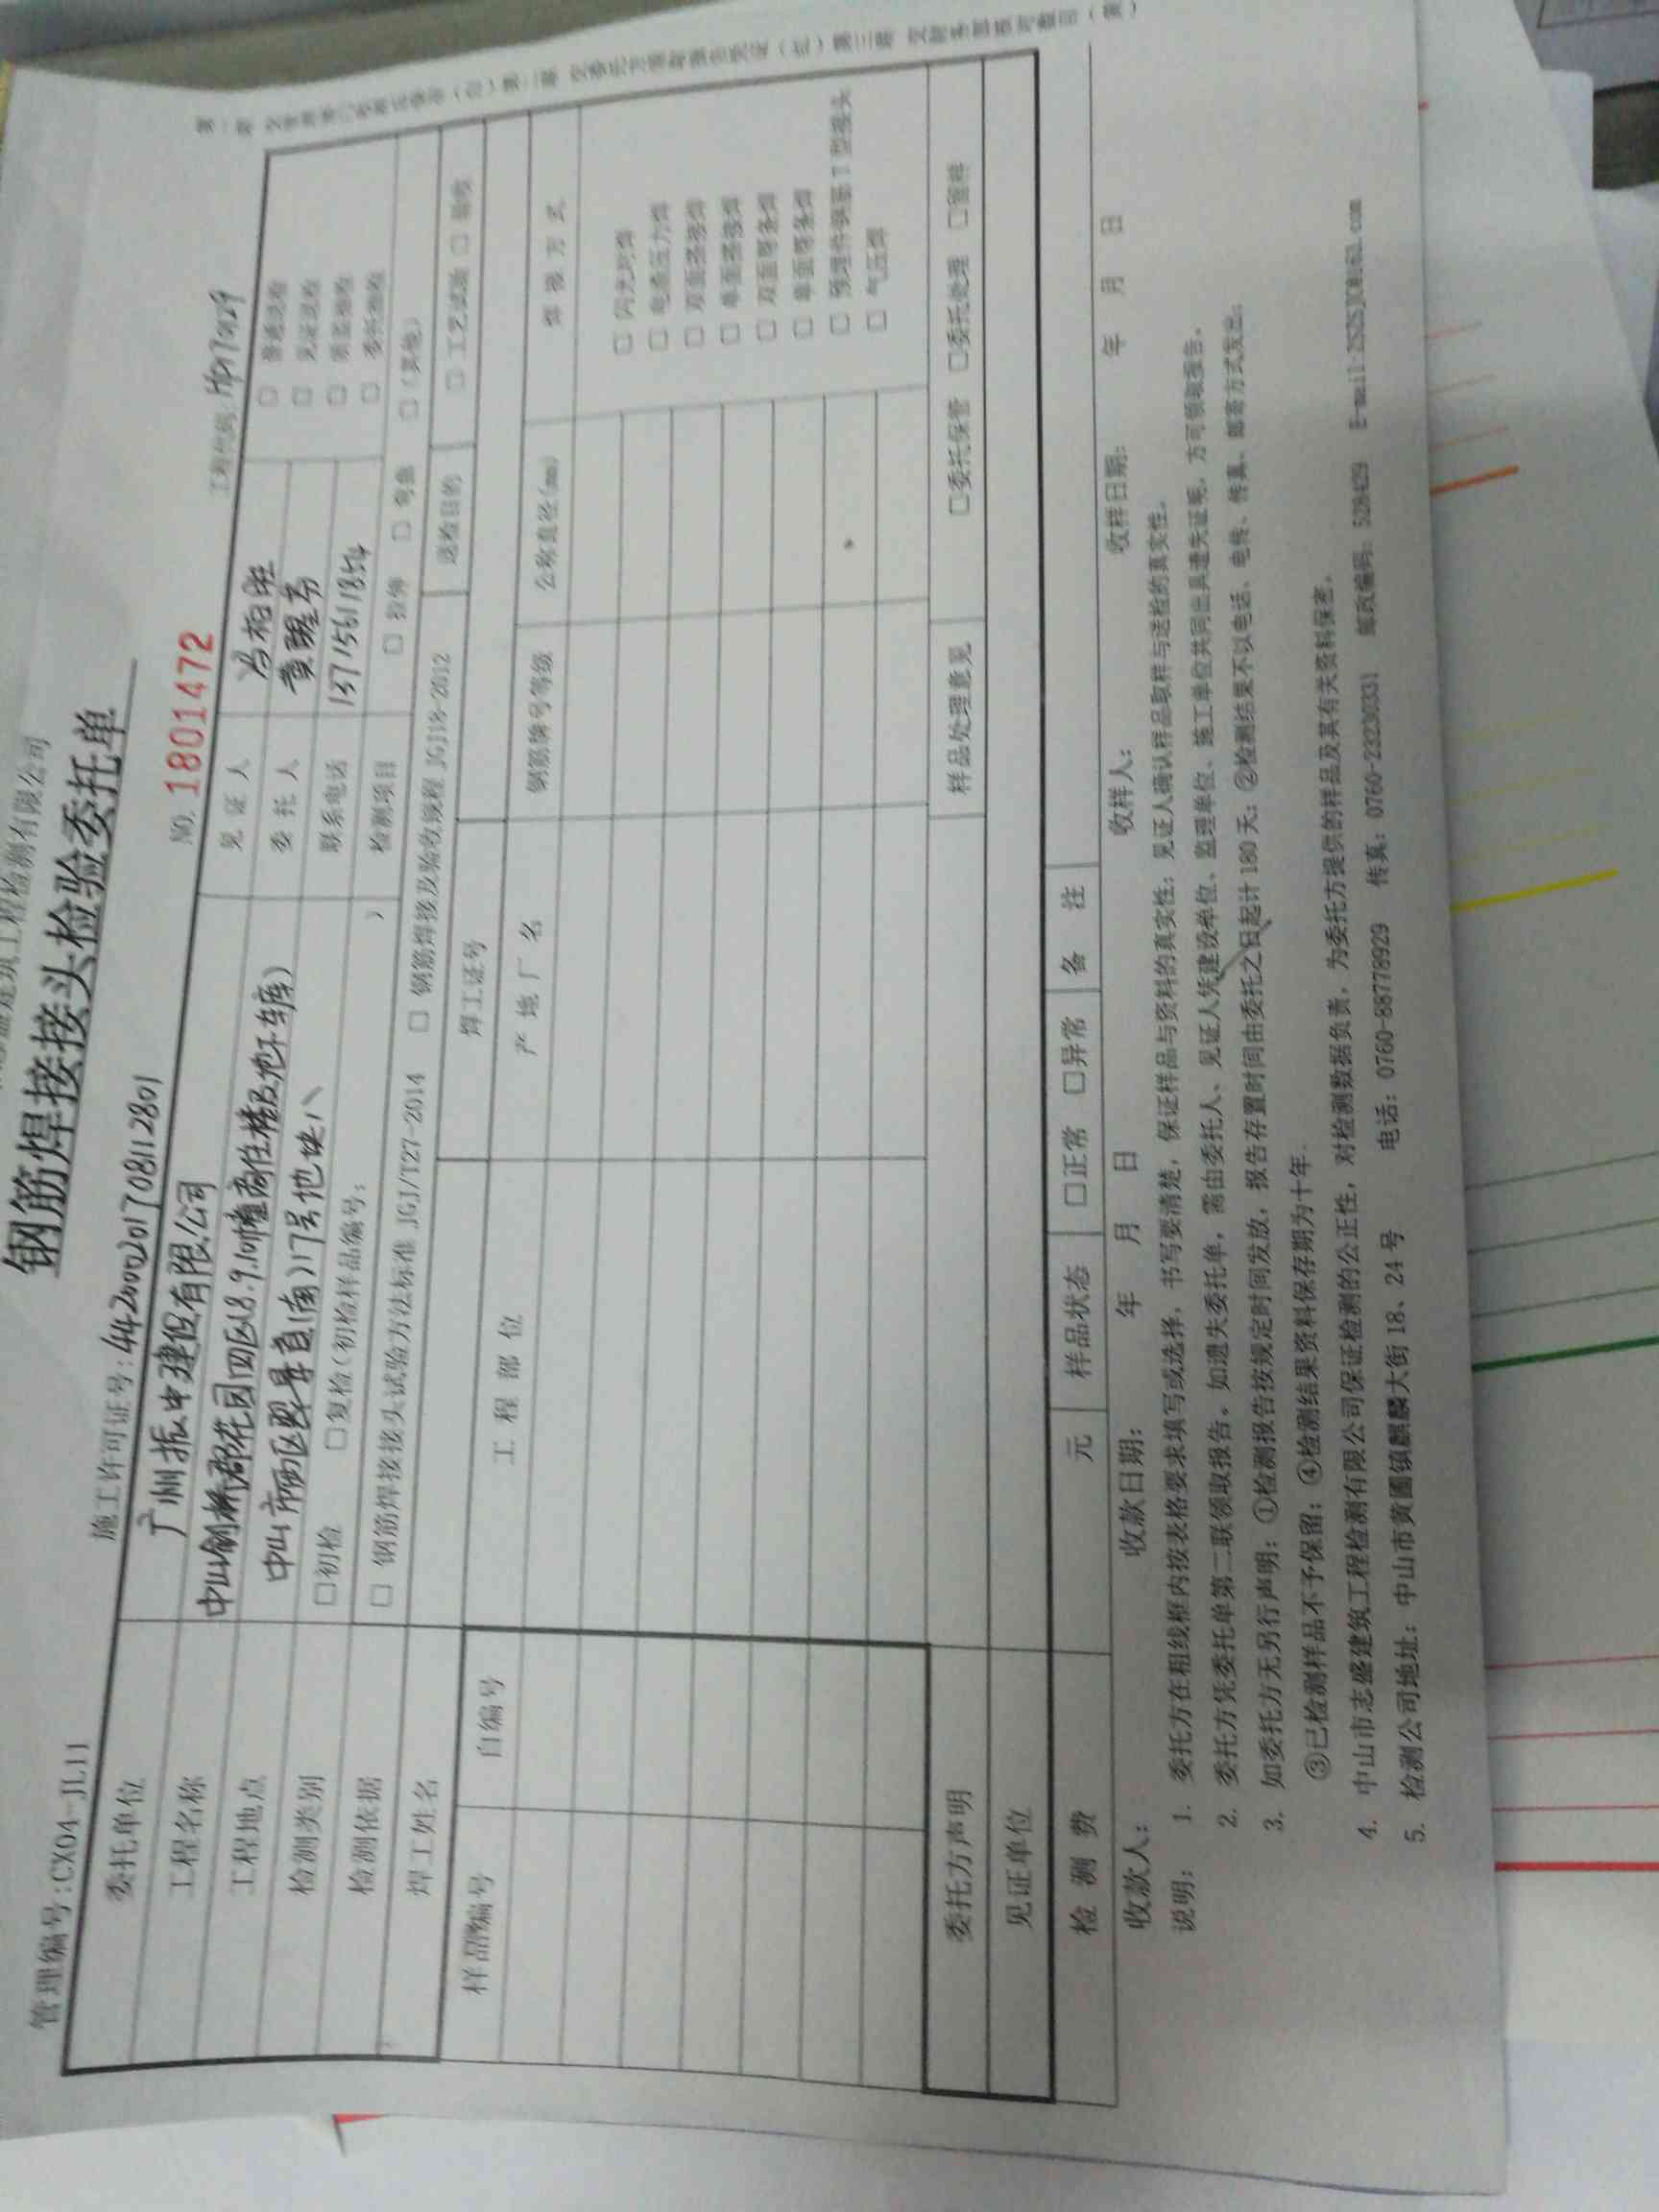 建筑工程检测有限公司
钢筋焊接接头检验委托单
管理编号:CX04-JL11
施工许可证号:442000201708112801
NO. 1801472
工程代码:
委托单位 广州振中建设有限公司 见证人
工程名称 花园四区8.9.10幢商住楼及地下车库) 委托人
工程地点 中山市西区翠景道(南)17号地块八 联系电话 13715611854
检测类别 □初检 □复检(初检样品编号: ) 检测项目 □拉伸 □弯曲 □(其他)
□普通送检
□见证送检
□质监抽检
□委托抽检
检测依据 □ 钢筋焊接接头试验方法标准 JGJ/T27-2014 □ 钢筋焊接及验收规程 JGJ18-2012 送检目的 □工艺试验 □验收
焊工姓名 焊工证号
样品编号 自编号 工程部位 产地厂名 钢筋牌号等级 公称直径(mm) 焊接方式
□ 闪光对焊
□ 电渣压力焊
□ 双面搭接焊
□ 单面搭接焊
□ 双面帮条焊
□ 单面帮条焊
□ 预埋件钢筋T型接头
□ 气压焊
委托方声明 样品处理意见 □委托保管 □委托处理 □留样
见证单位
检测费 元 样品状态 □正常 □异常 备注
收款人: 收款日期: 年 月 日 收样人: 收样日期: 年 月 日
说明: 1. 委托方在粗线框内按表格要求填写或选择,书写要清楚,保证样品与资料的真实性;见证人确认样品取样与送检的真实性。
2. 委托方凭委托单第二联领取报告。如遗失委托单,需由委托人、见证人凭建设单位、监理单位、施工单位共同出具遗失证明,方可领取报告。
3. 如委托方无另行声明:①检测报告按规定时间发放,报告存置时间由委托之日起计180天;②检测结果不以电话、电传、传真、邮寄方式发出;
③已检测样品不予保留;④检测结果资料保存期为十年.
4. 中山市志盛建筑工程检测有限公司保证检测的公正性,对检测数据负责,为委托方提供的样品及其有关资料保密.
5. 检测公司地址:中山市黄圃镇麒麟大街18、24号 电话:0760-88778929 传真:0760-23230331 邮政编码:528429